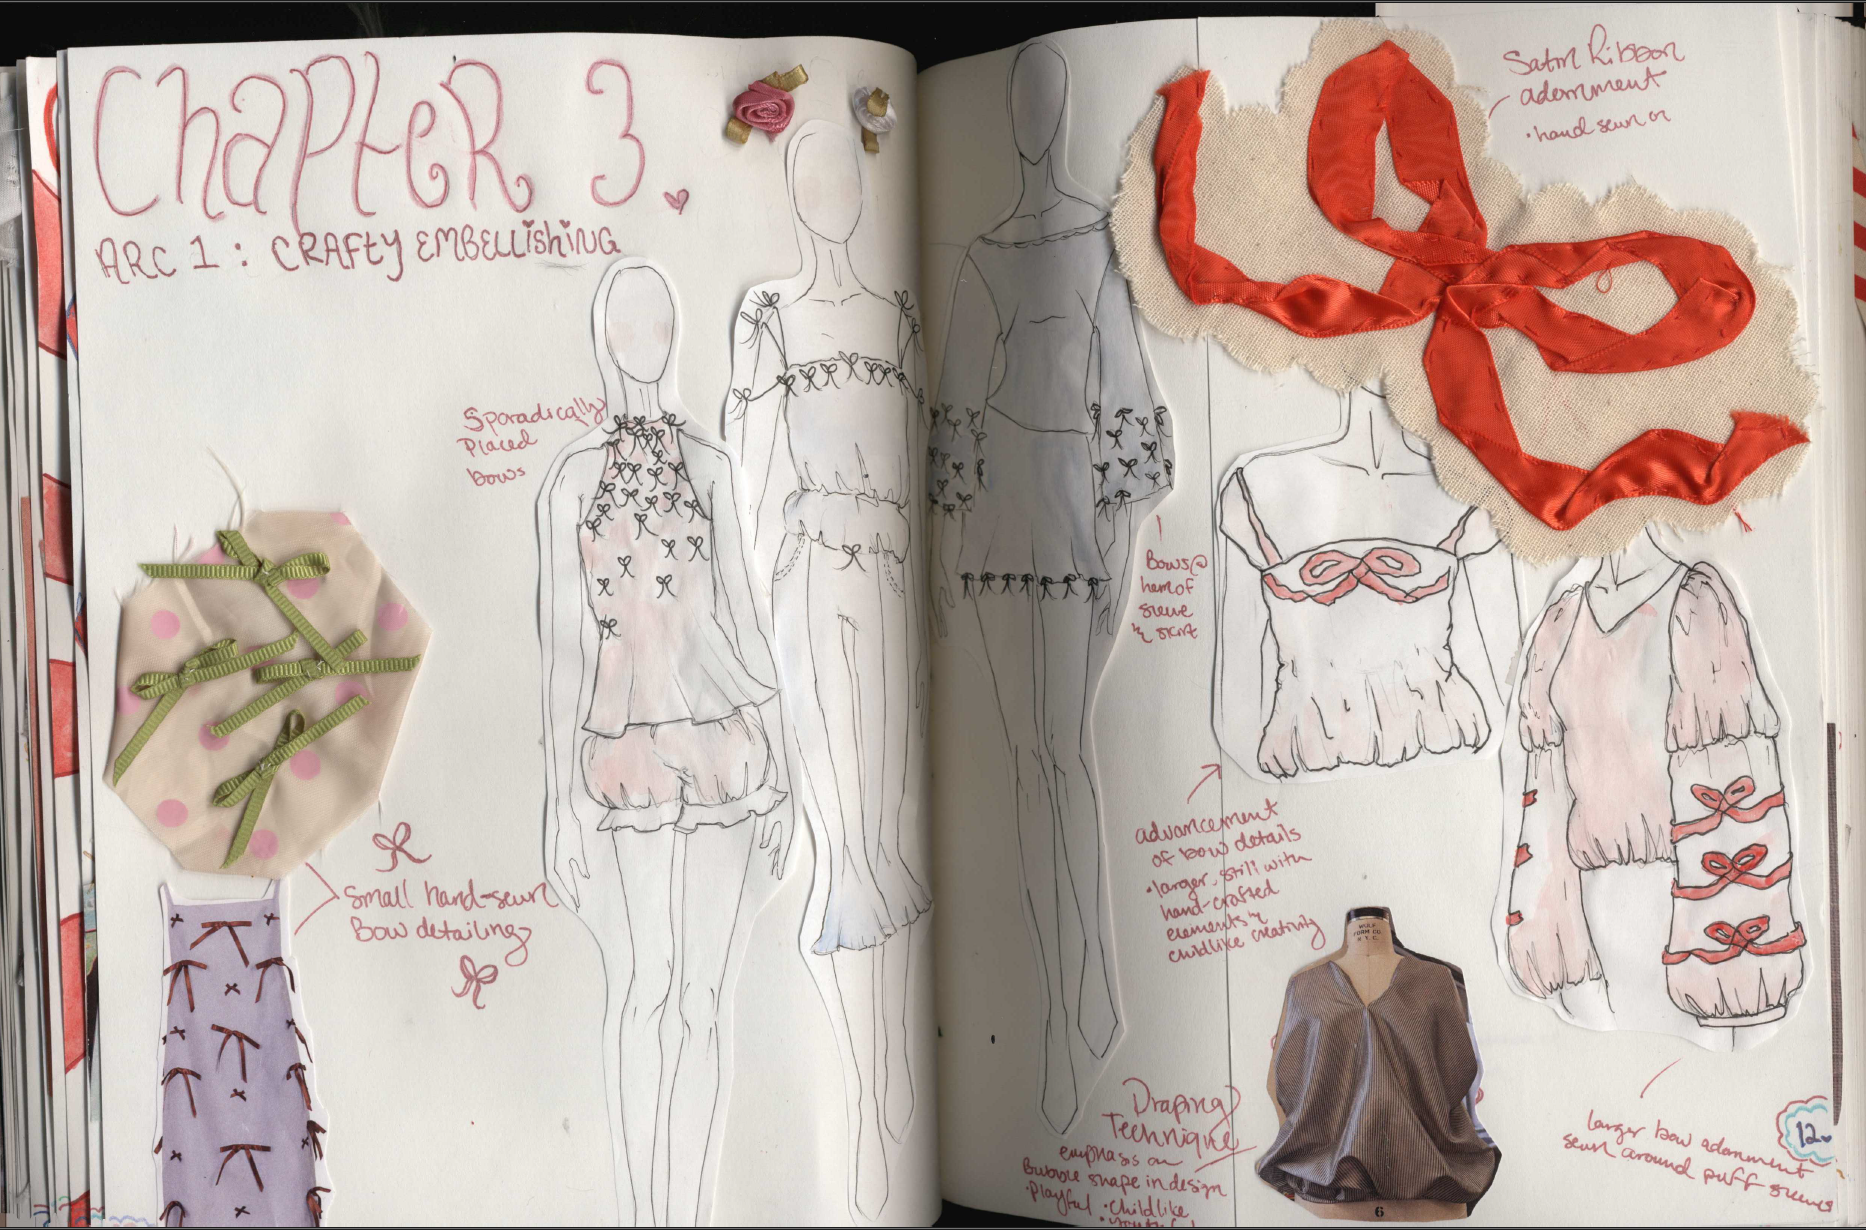 Chapter 3.
ARC 1 : CRAFTY EMBELLISHING
Sporadically
Placed
bows
Small hand-sewn
Bow detailing
Satin Ribbon
adornment
• hand sewn on
Bows @
hem of
sleeve
skirt
advancement
of bow details
• larger, still with
hand-crafted
elements
childlike creativity
WOLF
FORM CO.
N.Y.C
6
Draping
Technique
emphasis on
Bubble shape in design
• playful • childlike
larger bow adornment
sewn around puff sleeves
12